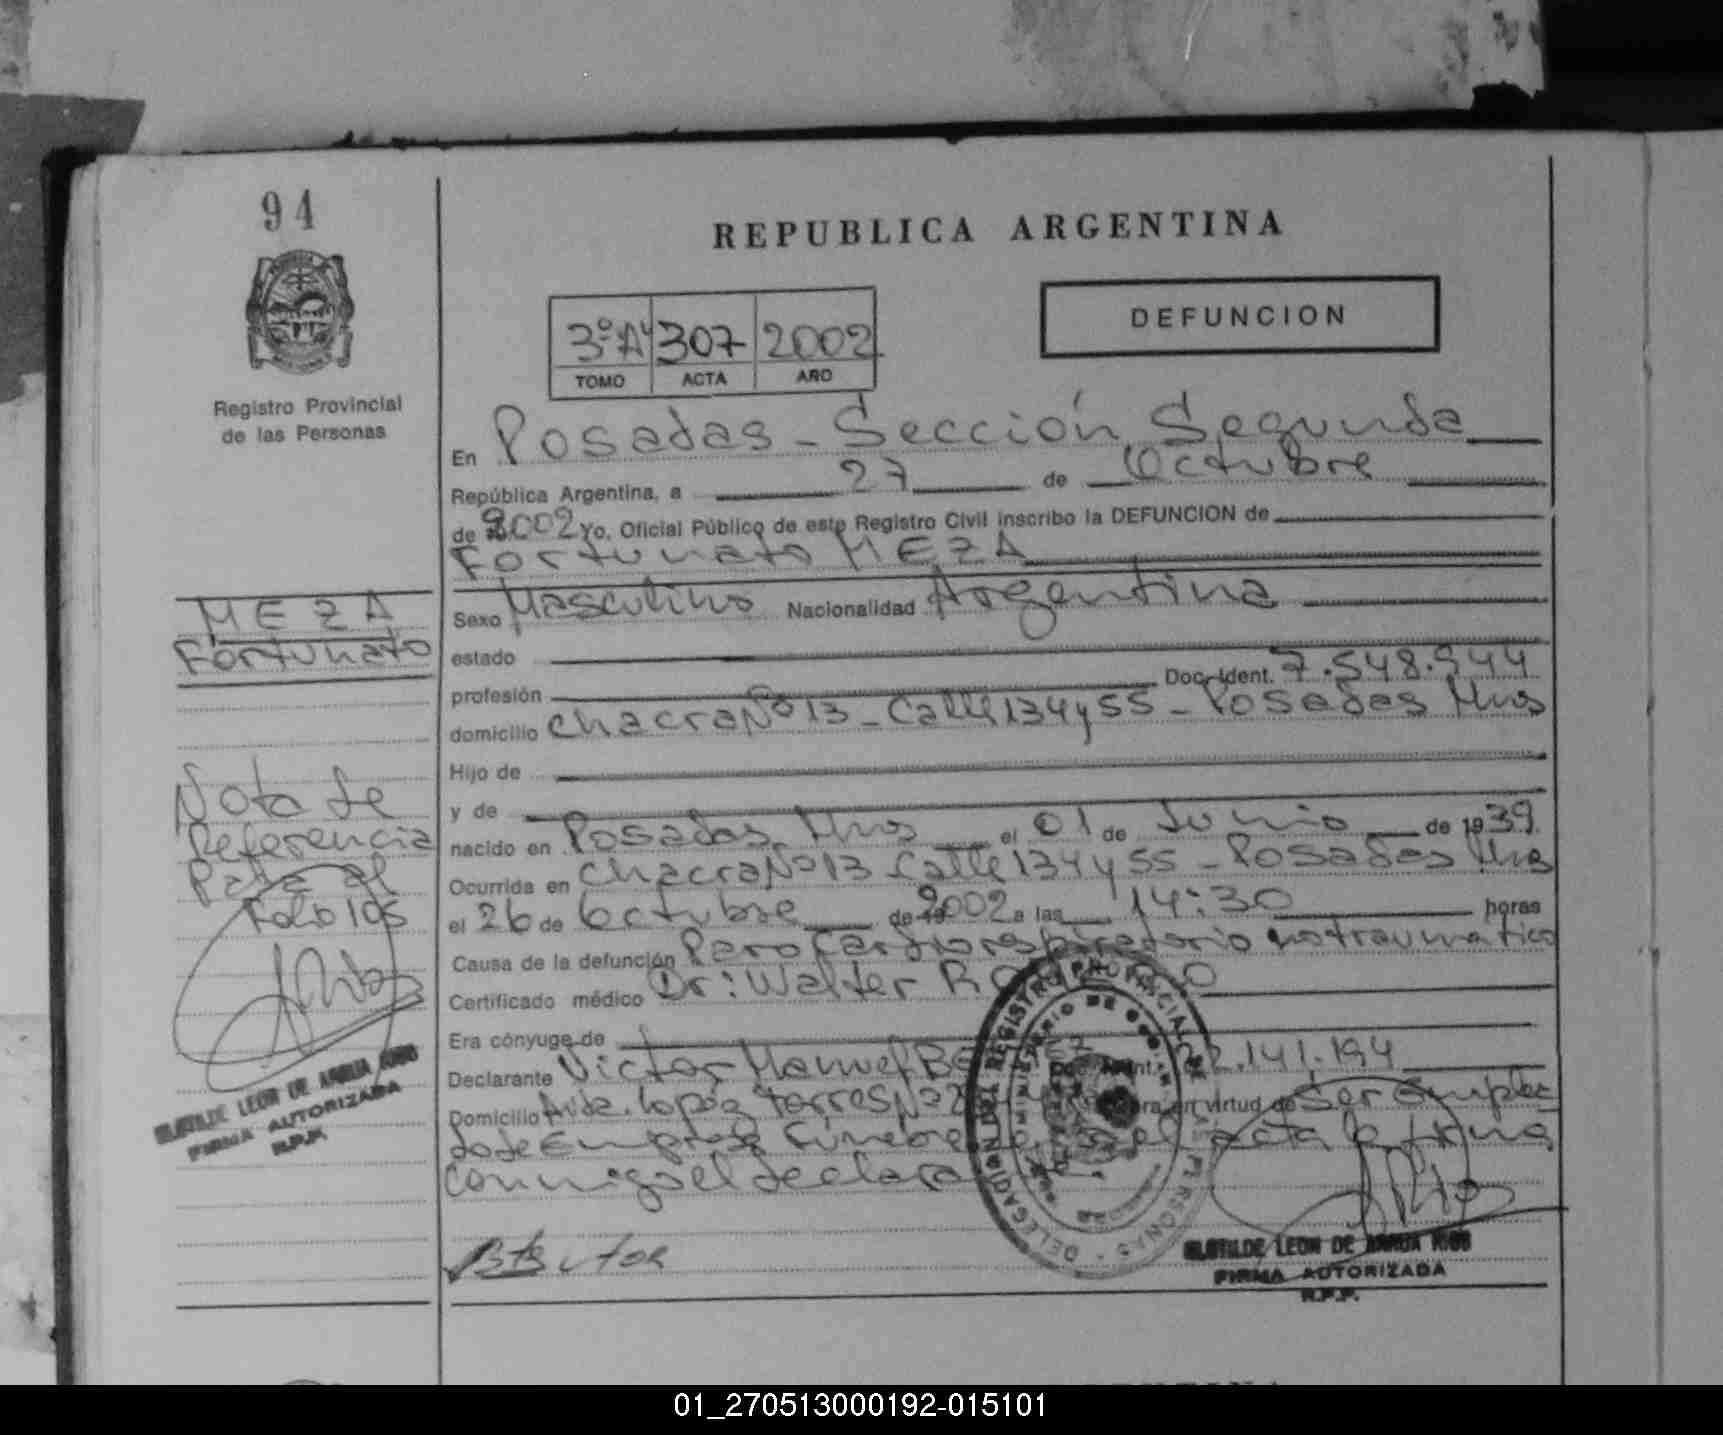 94
REPUBLICA ARGENTINA
3º"A" 307 2002
TOMO ACTA AÑO
DEFUNCION
Registro Provincial
de las Personas
En Posadas - Sección Segunda
República Argentina, a 27 de Octubre
de 2002 Yo, Oficial Público de este Registro Civil inscribo la DEFUNCION de
Fortunato MEZA
MEZA
Fortunato
Sexo Masculino Nacionalidad Argentina
estado
profesión Doc. Ident. 7.548.944
domicilio Chacra Nº 13 - Calle 134 y 55 - Posadas Mnes
Hijo de
y de
nacido en Posadas, Mnes el 01 de Junio de 1939
Ocurrida en Chacra Nº 13 - Calle 134 y 55 - Posadas Mnes
el 26 de Octubre de 19 2002 a las 14:30 horas
Causa de la defunción Paro Cardiorespiratorio no traumatico
Certificado médico Dr: Walter
Era cónyuge de
Declarante Victor Manuel Doc. Ident. 22.141.194
Domicilio Avda. Lopez Torres Nº en virtud de Ser Emplea
do de Empresa Funebre el acta la firma
conmigo el declara
Nota de
Referencia
Pasa al
Folio 105
CLOTILDE LEON DE ARRUA RIOS
FIRMA AUTORIZADA
R.P.P.
DELEGACION DEL REGISTRO PROVINCIAL DE LAS PERSONAS
MINISTERIO DE GOB
CLOTILDE LEON DE ARRUA RIOS
FIRMA AUTORIZADA
R.P.P.
01_270513000192-015101